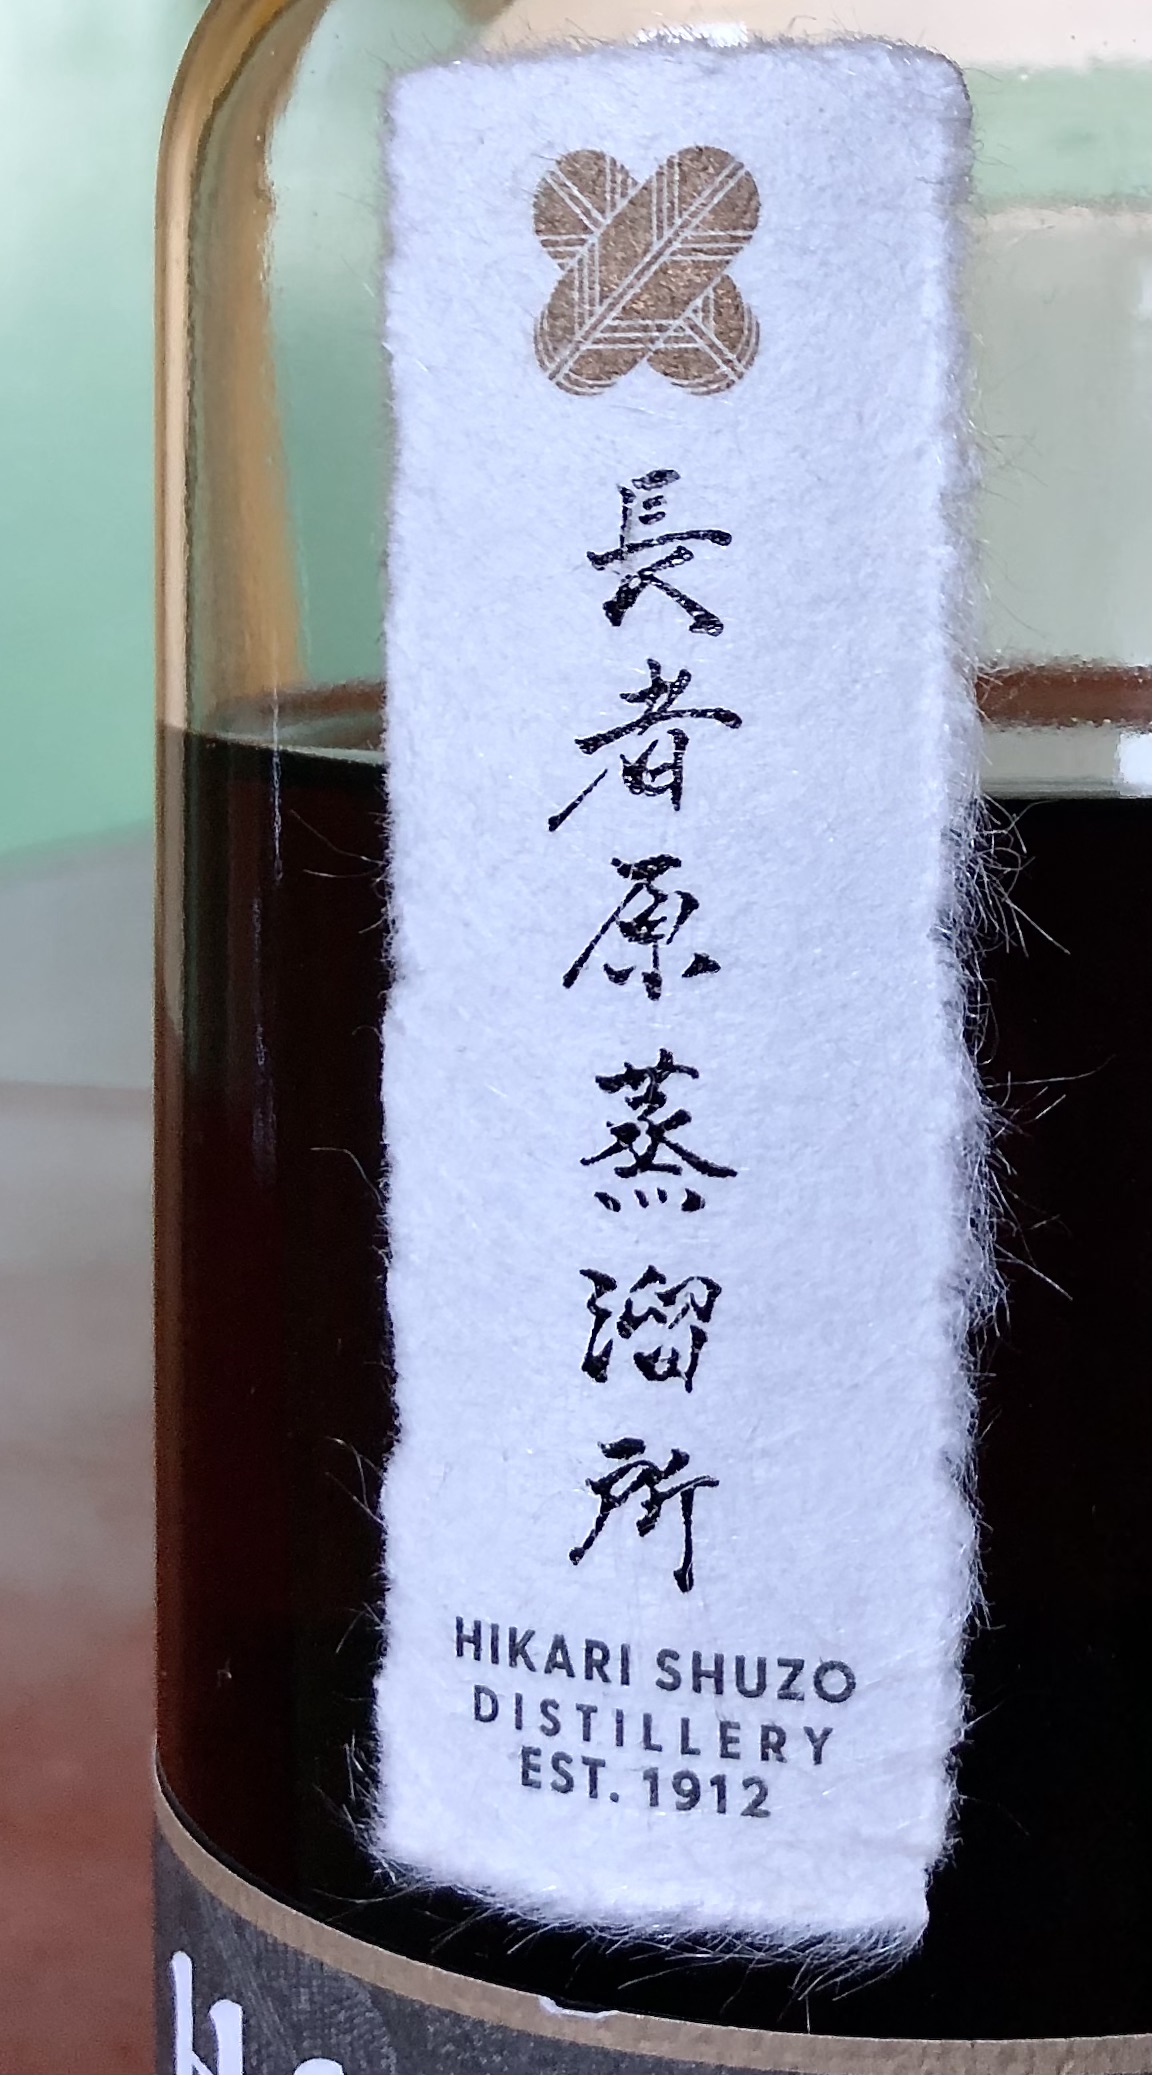 長者原蒸溜所
HIKARI SHUZO
DISTILLERY
EST. 1912